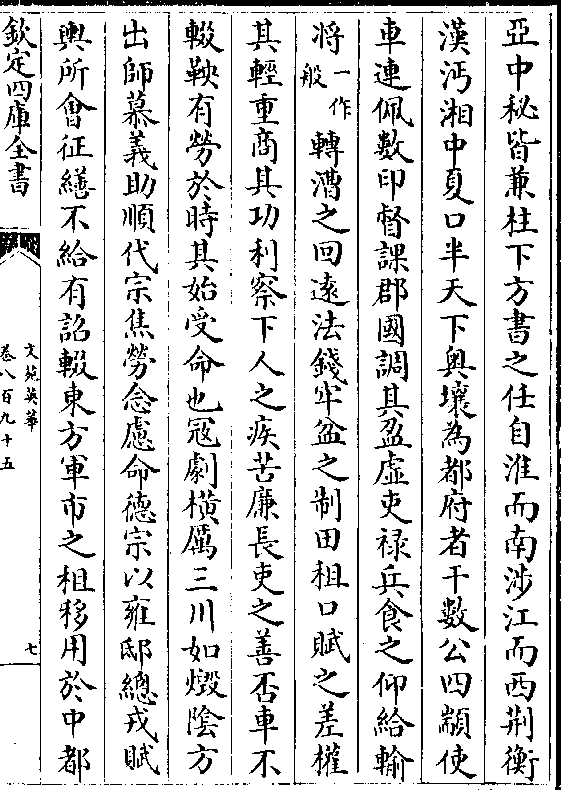 亞中秘皆兼柱下方書之任自淮而南涉江而西荆衡
漢沔湘中夏口半天下奥壤為都府者干數公四顓使
車連佩數印督課郡國調其盈虚吏禄兵食之仰給輸
將一作般轉漕之回遠法錢牢盆之制田租口賦之差權
其輕重商其功利察下人之疾苦廉長吏之善否車不
輟鞅有勞於時其始受命也冦劇横厲三川如燬隂方
出師慕義助順代宗焦勞念慮命德宗以雍邸總戎賦
輿所會征繕不給有詔輟東方軍市之租移用於中都
欽定四庫全書
文苑英華
卷八百九十五
七